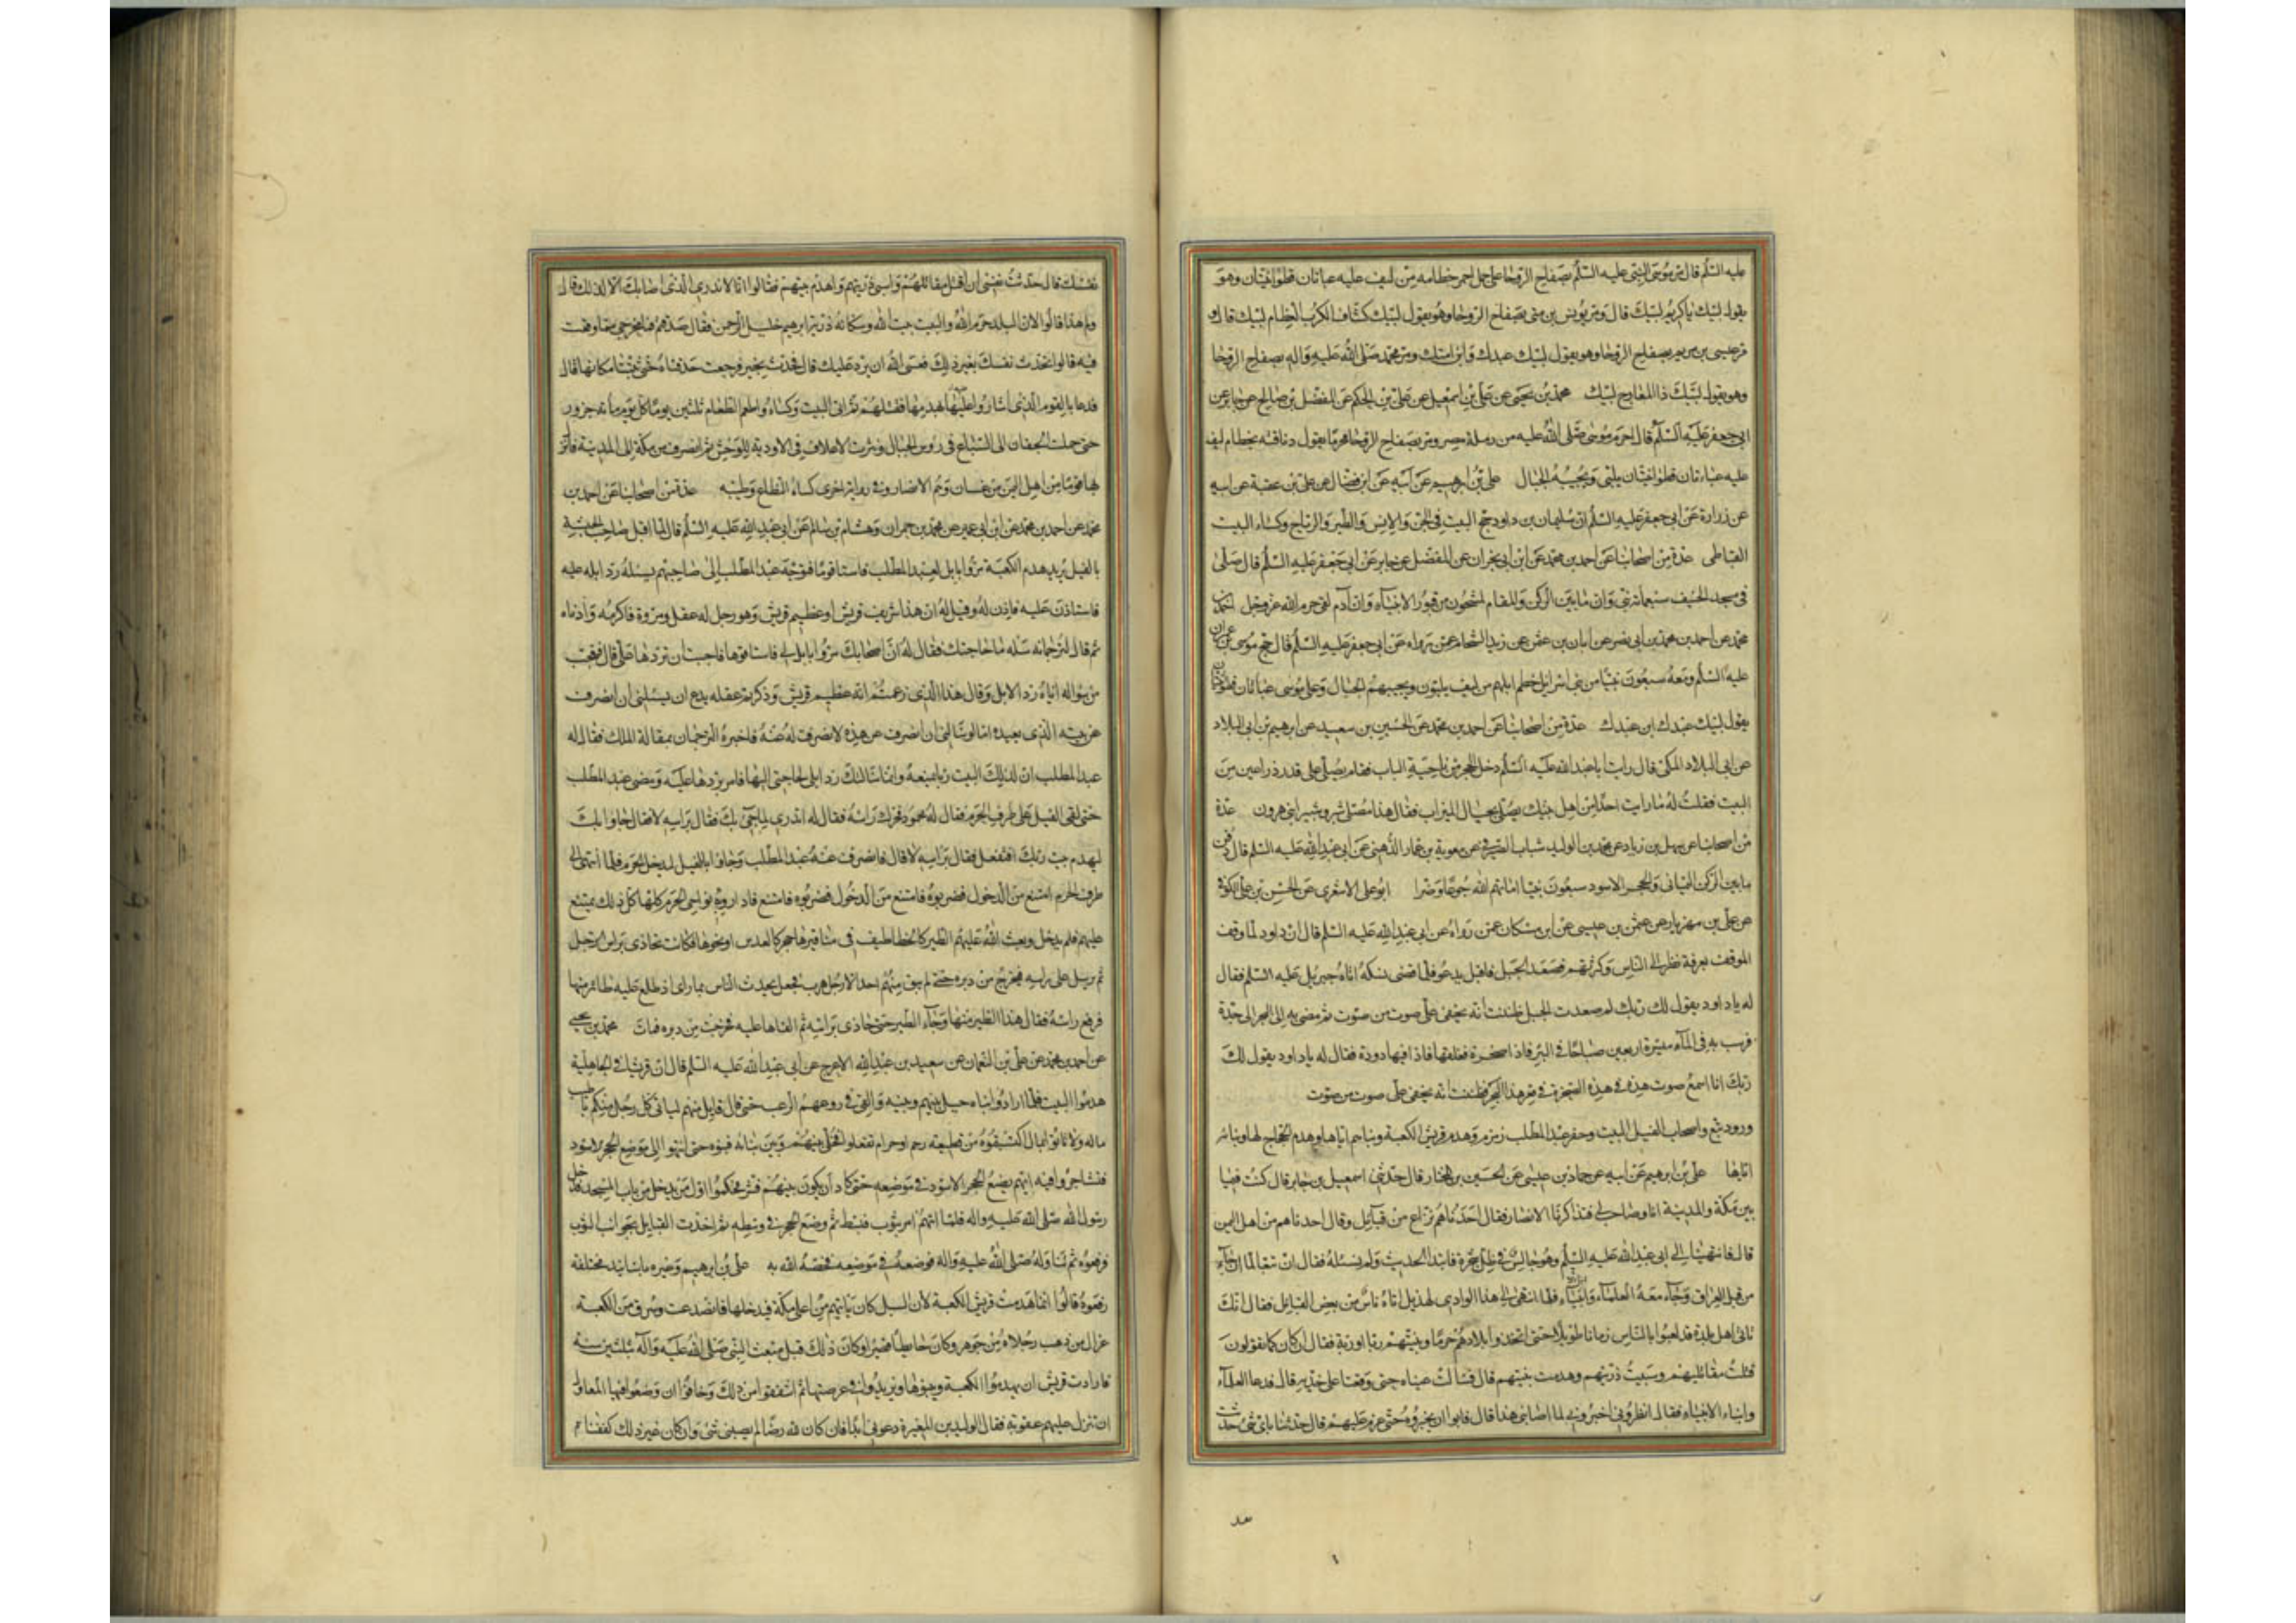 عليه السّلم قال مرّ موسى النبي عليه السّلم بصفاح الروحا على جمل احمر خطامه من ليف عليه عباتان قطوانيتان وهو
يقول لبّيك ياكريم لبّيك قال ومرّ يونس بن متى بصفاح الروحا وهو يقول لبّيك كشاف الكرب العظام لبّيك قال
مرّ عيسى بن مريم بصفاح الروحا وهو يقول لبّيك عبدك وابن امتك ومرّ محمّد صلّى الله عليه واله بصفاح الروحا
وهو يقول لبّيك ذا المعارج لبّيك محمّد بن يحيى عن علي بن اسمعيل عن علي بن الحكم عن المفضل بن صالح عن جابر عن
ابي جعفر عليه السّلم قال احرم موسى صلّى الله عليه من رملة مصر ومر بصفاح الروحا محرمًا يقود ناقته بخطام ليف
عليه عباءتان قطوانيتان يلبّي ويجيبه الجبال علي بن ابرهيم عن ابيه عن ابن فضال عن علي بن عقبة عن ابيه
عن زرارة عن ابي جعفر عليه السّلم ان سليمان بن داود حج البيت في الجن والانس والطير والرياح وكساء البيت
القباطي عدة من اصحابنا عن احمد بن محمد عن ابن ابي نجران عن المفضل عن جابر عن ابي جعفر عليه السّلم قال صلّى
في مسجد الخيف سبعمائة نبي وان ما بين الركن والمقام لمشحون من قبور الانبياء وان آدم لفي حرم الله عز وجل احمد بن
محمد عن احمد بن محمد بن ابي نصر عن ابان بن عثمن عن زيد الشحام عمن رواه عن ابي جعفر عليه السّلم قال حج موسى بن عمران
عليه السّلم ومعه سبعون نبيّا من بني اسرائيل خطم ابلهم من ليف يلبّون ويجيبهم الجبال وعلى موسى عباتان قطوانيتان
يقول لبّيك عبدك ابن عبدك عدة من اصحابنا عن احمد بن محمد عن الحسين بن سعيد عن ابرهيم بن ابي البلاد
عن ابي البلاد المكي قال رايت ابا عبد الله عليه السّلم دخل الحجر من ناحية الباب فقام يصلّي على قدر ذراعين من
البيت فقلت له ما رايت احدًا من اهل بيتك يصلّي بحيال الميزاب فقال هذا مصلّى شبر وشبير ابني هرون عدة
من اصحابنا عن سهل بن زياد عن محمد بن الوليد شباب الصيرفي عن معوية بن عمار الدهني عن ابي عبد الله عليه السّلم قال دفن
ما بين الركن اليماني والحجر الاسود سبعون نبيا اماتهم الله جوعًا وضرا ابو علي الاشعري عن الحسن بن علي الكوفي
عن علي بن مهزيار عن عثمن بن عيسى عن ابن مسكان عمن رواه عن ابي عبد الله عليه السّلم قال ان داود لما وقف
الموقف بعرفة نظر الى الناس وكثرتهم فصعد الجبل فاقبل يدعو فلما قضى نسكه اتاه جبريل عليه السّلم فقال
له ياداود يقول لك ربّك لم صعدت الجبل ظننت انه يخفى علي صوت من صوت ثم مضى به الى البحر الى جدّة
فرسب به في المآء مسيرة اربعين صباحًا في البر فاذا صخرة ففلقها فاذا فيها دودة فقال له ياداود يقول لك
ربّك انا اسمع صوت هذه في هذه الصخرة في قعر هذا البحر فظننت انه يخفى علي صوت من صوت
ورود تبع واصحاب الفيل البيت وحفر عبد المطلب زمزم وهدم قريش الكعبة وبناهم اياها وهدم الحجاج لها وبنائه
اياها علي بن ابرهيم عن ابيه عن حماد بن عيسى عن الحسين بن المختار قال حدّثني اسمعيل بن جابر قال كنت فيما
بين مكّة والمدينة انا وصاحب لي فتذاكرنا الانصار فقال احدنا هم نزاع من قبائل وقال احدنا هم من اهل اليمن
قال فانتهينا الى ابي عبد الله عليه السّلم وهو جالس في ظل شجرة فابتدا الحديث ولم نسئله فقال ان تبعا لما ان جاء
من قبل العراق وجاء معه العلماء وابناء الانبياء فلما انتهى الى هذا الوادي لهذيل اتاه ناس من بعض القبايل فقال انك
تاتي اهل بلدة قد لعبوا بالناس زمانا طويلا حتى اتخذوا بلادهم حرمًا وبنيتهم ربا او ربة فقال ان كان كما تقولون
قتلت مقاتليهم وسبيت ذريتهم وهدمت بنيتهم قال فسالت عيناه حتى وقعتا على خدّيه قال فدعا العلماء
وابناء الانبياء فقال انظروني اخبروني لما اصابني هذا قال فابوا ان يخبروه حتى عزم عليهم قال حدّثنا باي شيء حدّثت
نفسك قال حدّثت نفسي ان اقتل مقاتلهم واسبي ذريتهم واهدم بنيتهم فقالوا انا لا ندري الذي اصابك الا لذلك قال
ولم هذا قالوا لان البلد حرم الله والبيت بيت الله وسكانه ذرية ابرهيم خليل الرحمن فقال صدقتم فما مخرجي مما وقعت
فيه قالوا تحدّث نفسك بغير ذلك فعسى الله ان يرد عليك قال فحدّث بخير فرجعت حدقتاه حتى ثبتتا مكانهما قال
فدعا بالقوم الذي اشاروا عليه بهدمها فقتلهم ثم اتى البيت وكساه واطعم الطعام ثلثين يومًا كل يوم مائة جزور
حتى حملت الجفان الى السباع في رؤس الجبال ونثرت الاعلاف في الاودية للوحش ثم انصرف من مكة الى المدينة فانزل
بها قومًا من اهل اليمن من غسان وهم الانصار وفي رواية اخرى كساه النطاع وطيّبه عدة من اصحابنا عن احمد بن
محمد عن احمد بن محمد عن ابن ابي عمير عن محمد بن حمران وهشام بن سالم عن ابي عبد الله عليه السّلم قال لما اقبل صاحب الحبشة
بالفيل يريد هدم الكعبة مرّوا بابل لعبد المطلب فاستاقوها فتوجّه عبد المطّلب الى صاحبهم يسئله رد ابله عليه
فاستاذن عليه فاذن له وقيل له ان هذا شريف قريش او عظيم قريش وهو رجل له عقل ومروة فاكرمه وادناه
ثم قال لترجمانه سله ما حاجتك فقال له ان اصحابك مرّوا بابل لي فاستاقوها فاحببت ان تردّها علي قال فتعجب
من سؤاله اياه رد الابل وقال هذا الذي زعمتم انه عظيم قريش وذكرتم عقله يدع ان يسئلني ان انصرف
عن بيته الذي يعبده اما لو سالني ان انصرف عن هذه لانصرفت له عنه فاخبره الترجمان بمقالة الملك فقال له
عبد المطلب ان لذلك البيت ربا يمنعه وانما سالتك رد ابلي لحاجتي اليها فامر بردها عليه ومضى عبد المطّلب
حتى لقي الفيل على طرف الحرم فقال له محمود فحرك راسه فقال له اتدري لم جئ بك فقال براسه لا فقال جاؤا بك
ليهدم بيت ربّك افتفعل فقال براسه لا قال فانصرفت عنه عبد المطلب وجاؤا بالفيل ليدخل الحرم فلما انتهى الى
طرف الحرم امتنع من الدخول فضربوه فامتنع من الدخول فضربوه فامتنع فاداروا به نواحي الحرم كلها كل ذلك يمتنع
عليهم فلم يدخل وبعث الله عليهم الطير كالخطاطيف في مناقيرها حجر كالعدس او نحوها فكانت تحاذى براس الرجل
ثم ترسل على راسه فيخرج من دبره حتى لم يبق منهم احد الا رجل هرب فجعل يحدث الناس بما راى اذ طلع عليه طائر منها
فرفع راسه فقال هذا الطير منها وجاء الطير حتى حاذى براسه ثم القاها عليه فخرجت من دبره فمات محمّد بن يحيى
عن احمد بن محمد عن علي بن النعمان عن سعيد بن عبد الله الاعرج عن ابي عبد الله عليه السّلم قال ان قريشا في الجاهلية
هدموا البيت فلما ارادوا بناه حيل بينهم وبينه والقي في روعهم الرعب حتى قال قائل منهم لياتي كل رجل منكم باطيب
ماله ولا تاتوا بمال اكتسبتموه من قطيعة رحم او حرام ففعلوا فخلي بينهم وبين بنائه فبنوه حتى انتهوا الى موضع الحجر الاسود
فتشاجروا فيه ايهم يضع الحجر الاسود في موضعه حتى كاد ان يكون بينهم شر فحكموا اول من يدخل من باب المسجد فدخل
رسول الله صلّى الله عليه واله فلما اتيهم امر بثوب فبسط ثم وضع الحجر في وسطه ثم اخذت القبايل بجوانب الثوب
فرفعوه ثم تناوله صلّى الله عليه واله فوضعه في موضعه فخصّه الله به علي بن ابرهيم وغيره باسانيد مختلفة
رفعوه قالوا انما هدمت قريش الكعبة لان السيل كان ياتيهم من اعلى مكة فيدخلها فانصدعت وسرق من الكعبة
غزال من ذهب رجلاه من جوهر وكان حائطها قصيرا وكان ذلك قبل مبعث النبي صلّى الله عليه وآله بثلثين سنة
فارادت قريش ان يهدموا الكعبة ويبنوها ويزيدوا في عرصتها ثم اشفقوا من ذلك وخافوا ان وضعوا فيها المعاول
ان تنزل عليهم عقوبة فقال الوليد بن المغيرة دعوني ابدا فان كان لله رضًا لم يصبني شئ وان كان غير ذلك كففنا